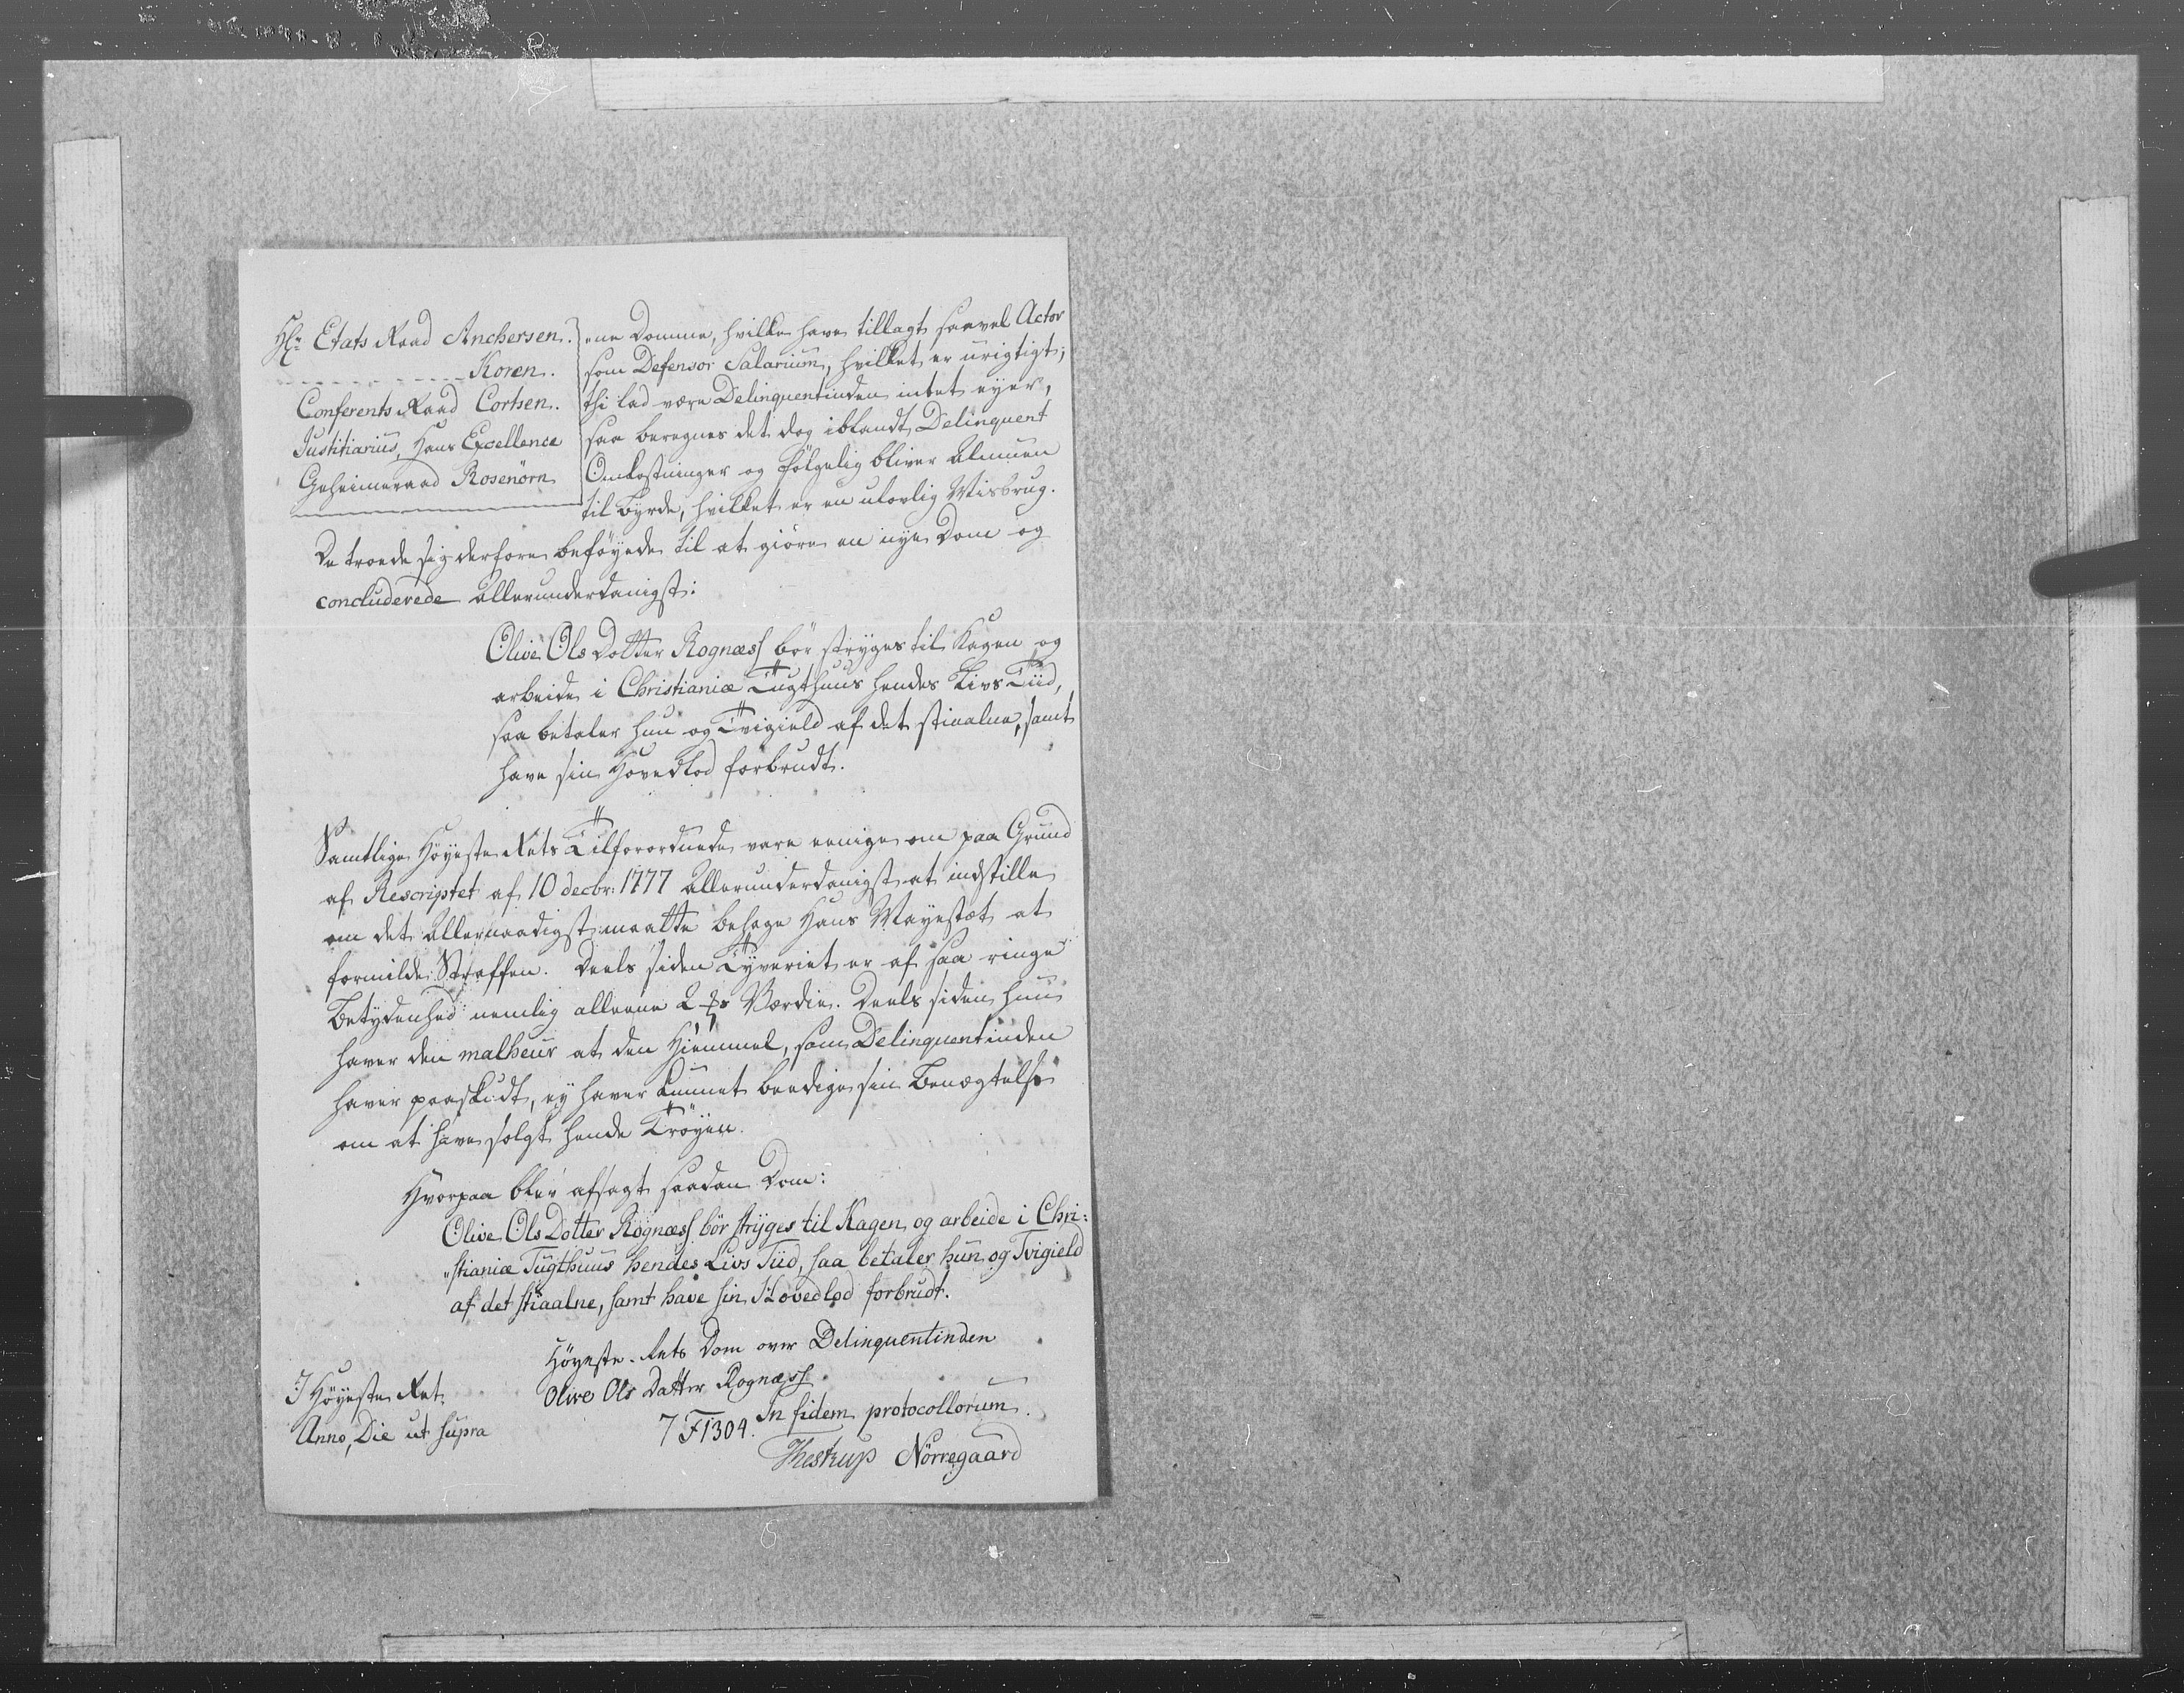 Hr Etats Raad Anchersen.
Koren.
Conferents Raad Cortsen.
Justitiarius, Hans Excellence
Geheimeraad Rosenörn
"ne Domme, hvilke have tillagt saavel Actor
som Defensor Salarium, hvilket er urigtigt;
thi lad være Delinquentinden intet eyer,
saa beregnes det dog iblandt Delinquent
Omkostninger og følgelig bliver Almuen
til Byrde, hvilket er en ulovlig Misbrug.
De troede sig derfore beföyede til at giöre en nye Dom og
concluderede allerunderdanigst:
Olive Ols Dotter Rognæss bör stryges til Kagen og
arbeide i Christianiæ Tugthuus hendes Livs Tiid,
saa betaler hun og Tvigield af det stiaalne, samt
have sin Hovedlod forbrudt.
Samtlige Höyeste Rets Tilforordnede vare eenige om paa Grund
af Rescriptet af 10 decbr: 1777 allerunderdanigst at indstille
om det allernaadigst maatte behage Hans Mayestæt at
formilde Straffen. Deels siden Tyveriet er af saa ringe
Betydenhed nemlig alleene 2 Værdie. Deels siden hun
haver den malheur at den Hiemmel, som Delinquentinden
haver paaskudt, ey haver kunnet beedige sin Benægtelse
om at have solgt hende Tröyen.
Hvorpaa blev afsagt saadan Dom:
Olive Ols Dotter Rognæss bör stryges til Kagen og arbeide i Chri:
"stianiæ Tugthuus hendes Livs Tiid, saa betaler hun og Tvigield
af det stiaalne, samt have sin Hovedlod forbrudt.
Höyeste Rets Dom over Delinquentinden
Olive Ols Datter Rognæss
J Höyeste Ret
Anno, Die ut supra
7 F1304.
In fidem protocollorum
Thestrup Nörregaard